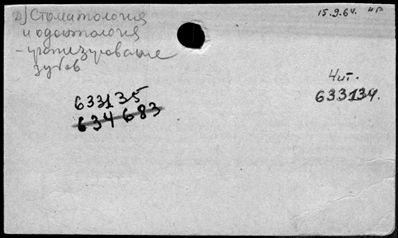 2) Стоматология
15.9.64.
и одонтология
- протезирование
зубов
Чит.
633134.
633135
634683